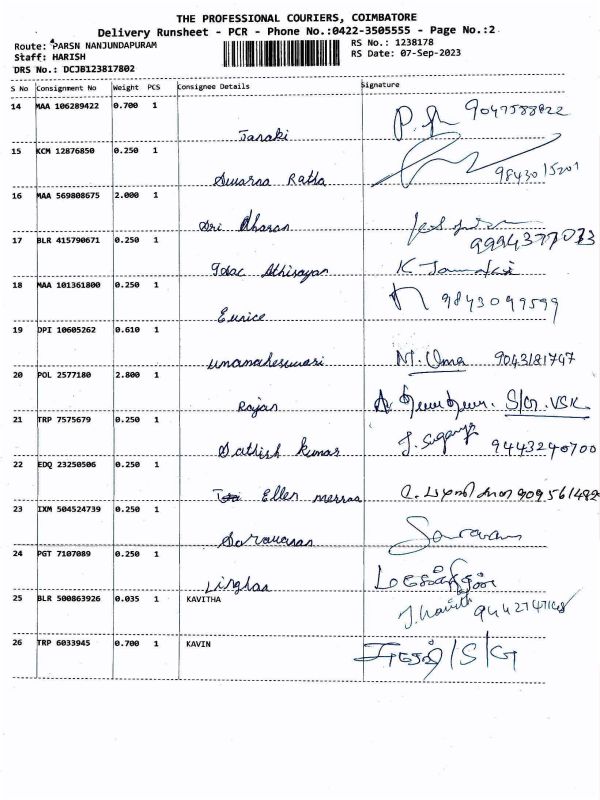 THE PROFESSIONAL COURIERS, COIMBATORE
Delivery Runsheet - PCR - Phone No.:0422-3505555 - Page No.:2
Route: PARSN NANJUNDAPURAM RS No.: 1238178
Staff: HARISH RS Date: 07-Sep-2023
DRS No.: DCJB123817802
S No Consignment No Weight PCS Consignee Details Signature
14 MAA 106289422 0.700 1
Janaki
15 KCM 12876850 0.250 1
Swarna Ratha 9843015201
16 MAA 569808675 2.000 1
Sri Dharan
17 BLR 415790671 0.250 1
Athisayan K Janaki
18 MAA 101361800 0.250 1
Eunice 9843099599
19 DPI 10605262 0.610 1
umamaheswari M. Uma 9043181747
20 POL 2577180 2.800 1
Rajan S/O. VSK
21 TRP 7575679 0.250 1
Sathish kumar 9443240700
22 EDQ 23250506 0.250 1
Ellen
23 IXM 504524739 0.250 1
Saravanan Saravan
24 PGT 7107089 0.250 1
25 BLR 500863926 0.035 1 KAVITHA
J. Kavith
26 TRP 6033945 0.700 1 KAVIN
/S/G